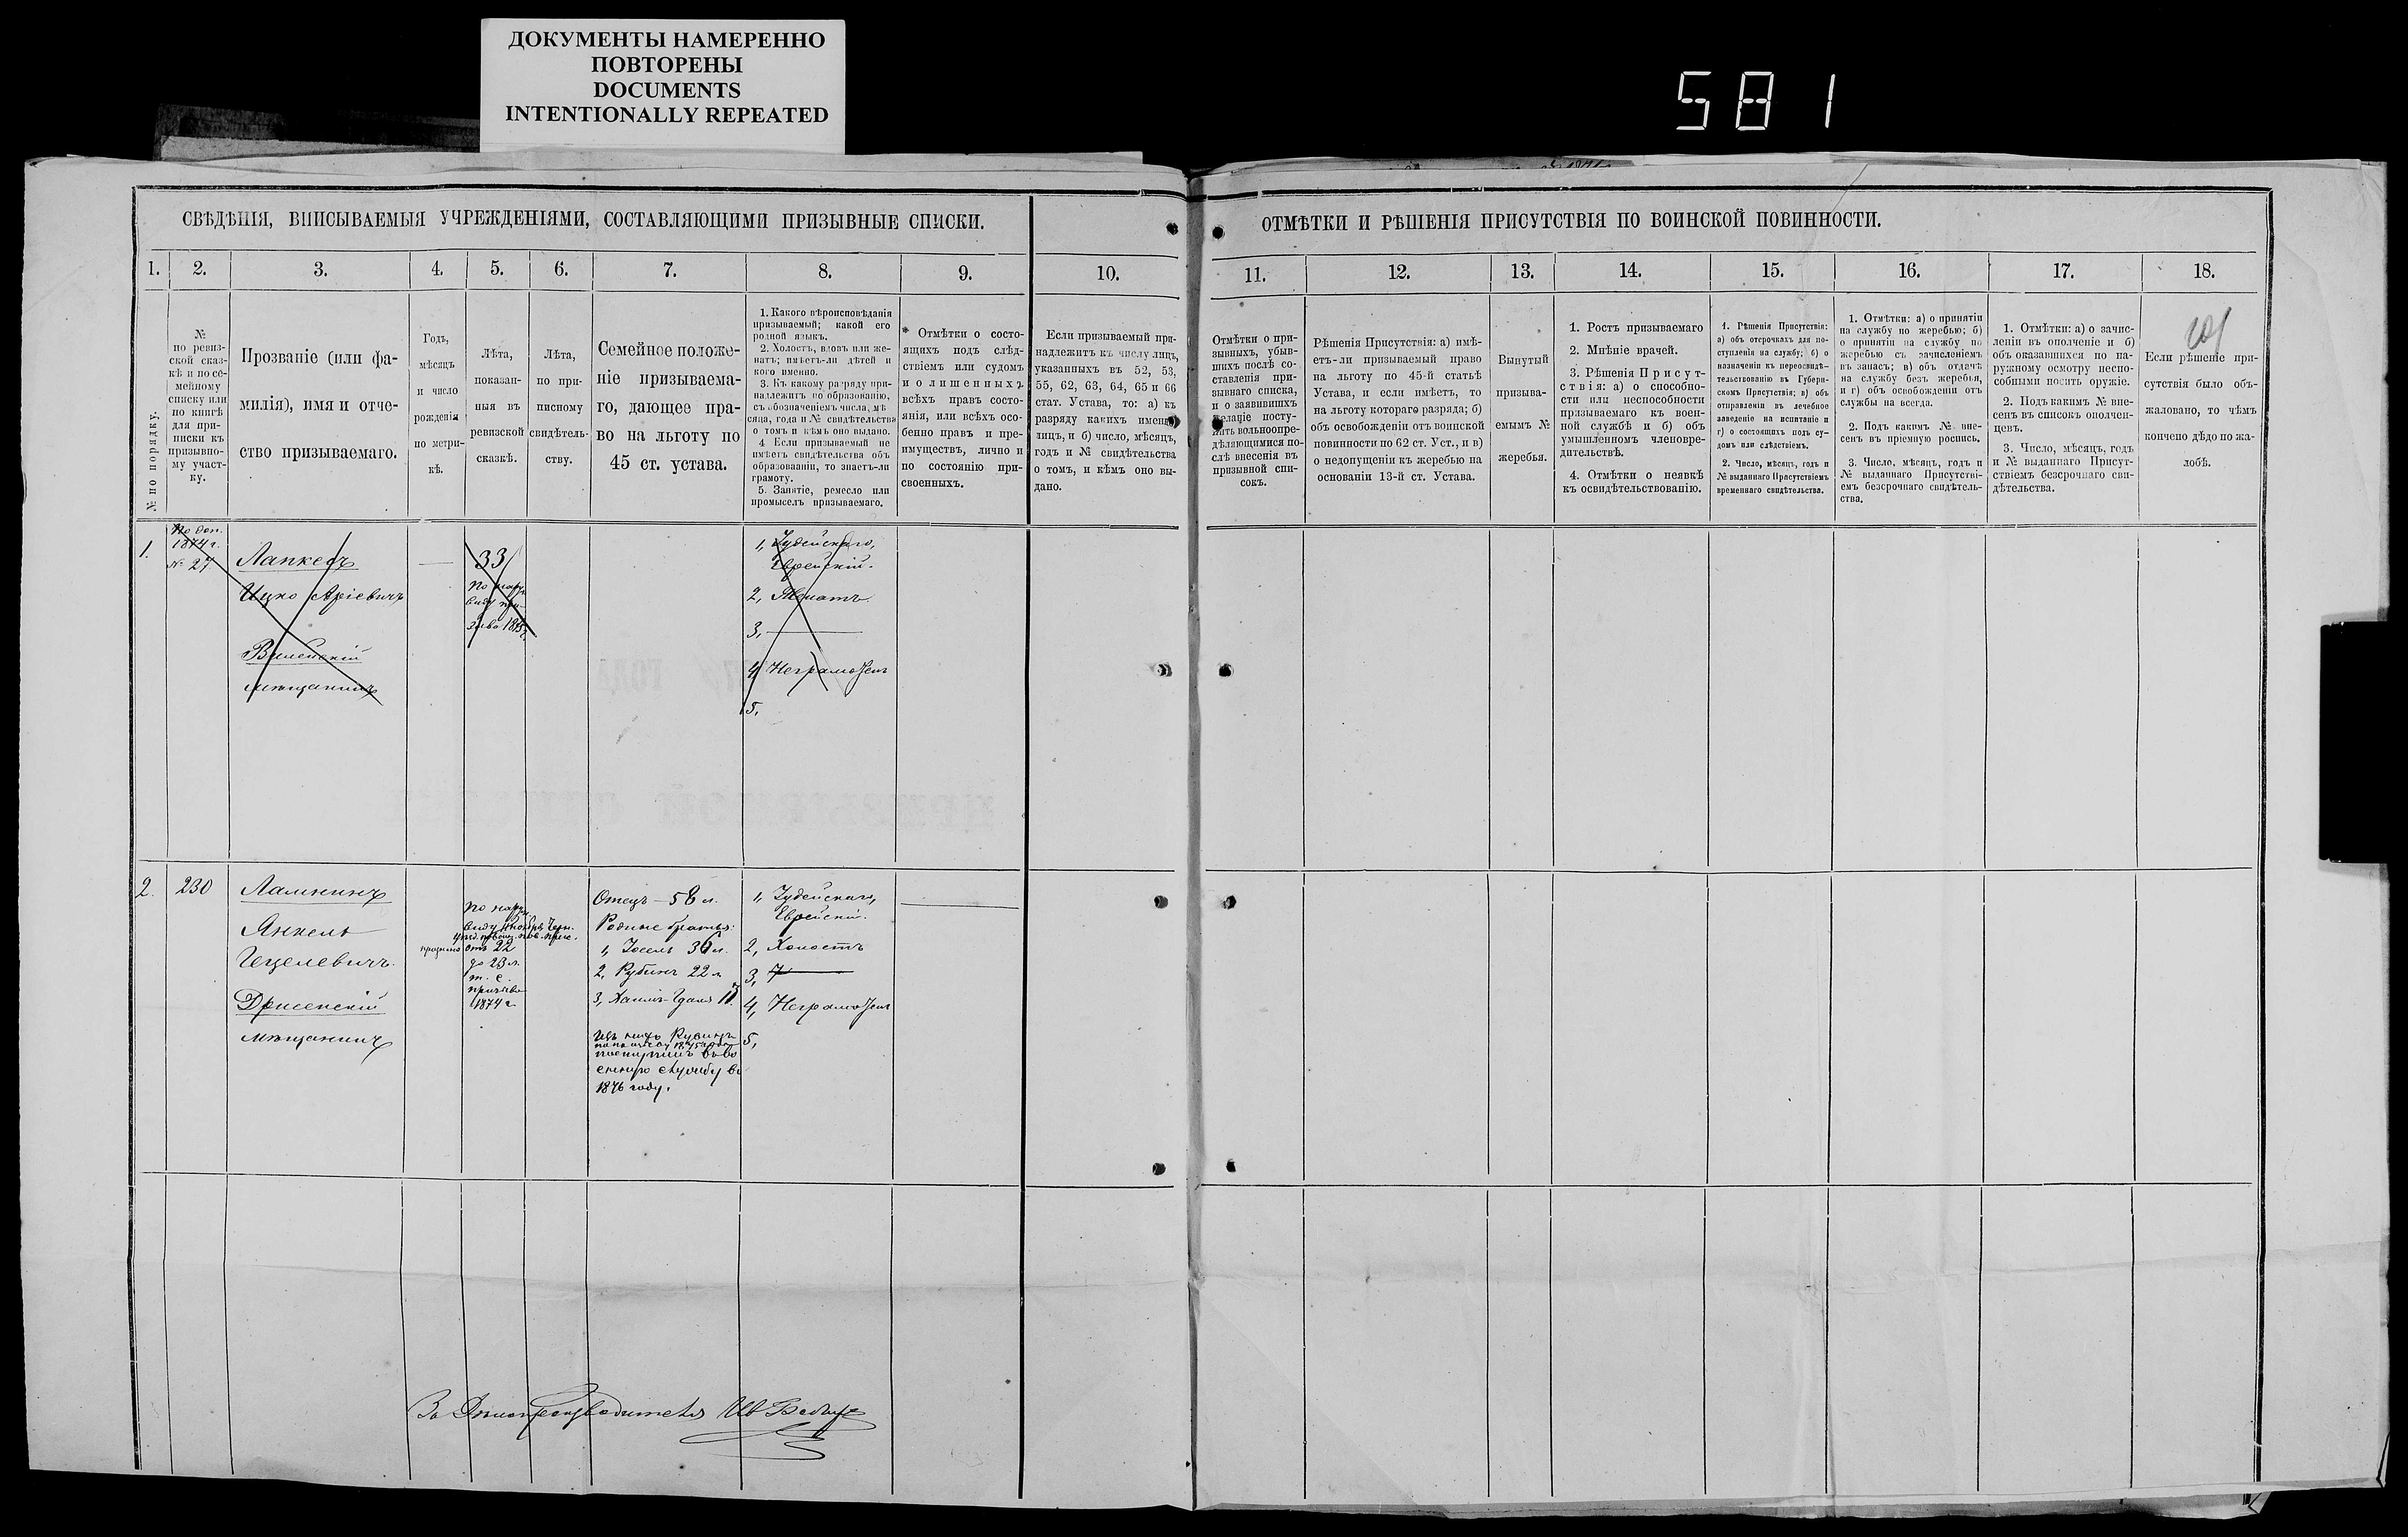 ДОКУМЕНТЫ НАМЕРЕННО
ПОВТОРЕНЫ
DOCUMENTS
INTENTIONALLY REPEATED
581
СВѢДѢНІЯ, ВПИСЫВАЕМЫЯ УЧРЕЖДЕНІЯМИ, СОСТАВЛЯЮЩИМИ ПРИЗЫВНЫЕ СПИСКИ.
ОТМѢТКИ И РѢШЕНІЯ ПРИСУТСТВІЯ ПО ВОИНСКОЙ ПОВИННОСТИ.
1. 2. 3. 4. 5. 6. 7. 8. 9. 10. 11. 12. 13. 14. 15. 16. 17. 18.
№ по порядку.
№
по ревиз-
ской сказ-
кѣ и по се-
мейному
списку или
по книгѣ
для при-
писки къ
призывно-
му участ-
ку.
Прозваніе (или фа-
милія), имя и отче-
ство призываемаго.
Годъ,
мѣсяцъ
и число
рожденія
по метри-
кѣ.
Лѣта,
показан-
ныя въ
ревизской
сказкѣ.
Лѣта,
по при-
писному
свидѣтель-
ству.
Семейное положе-
ніе призываема-
го, дающее пра-
во на льготу по
45 ст. устава.
1. Какого вѣроисповѣданія
призываемый; какой его
родной языкъ.
2. Холостъ, вдовъ или же-
натъ; имѣетъ-ли дѣтей и
кого именно.
3. Къ какому разряду при-
надлежитъ по образованію,
съ обозначеніемъ числа, мѣ
сяца, года и № свидѣтельства
о томъ и кѣмъ оно выдано.
4 Если призываемый не
имѣетъ свидѣтельства объ
образованіи, то знаетъ-ли
грамоту.
5. Занятіе, ремесло или
промыселъ призываемаго.
Отмѣтки о состо-
ящихъ подъ слѣд-
ствіемъ или судомъ
и о лишенныхъ
всѣхъ правъ состо-
янія, или всѣхъ осо-
бенно правъ и пре-
имуществъ, лично и
по состоянію при-
своенныхъ.
Если призываемый при-
надлежитъ къ числу лицъ,
указанныхъ въ 52, 53,
55, 62, 63, 64, 65 и 66
стат. Устава, то: а) къ
разряду какихъ именно
лицъ, и б) число, мѣсяцъ,
годъ и № свидѣтельства
о томъ, и кѣмъ оно вы-
дано.
Отмѣтки о при-
зывныхъ, убыв-
шихъ послѣ со-
ставленія при-
зывнаго списка,
и о заявившихъ
желаніе посту-
пить вольноопре-
дѣляющимися по-
слѣ внесенія въ
призывной спи-
сокъ.
Рѣшенія Присутствія: а) имѣ-
етъ-ли призываемый право
на льготу по 45-й статьѣ
Устава, и если имѣетъ, то
на льготу котораго разряда; б)
объ освобожденіи отъ воинской
повинности по 62 ст. Уст., и в)
о недопущеніи къ жеребью на
основаніи 13-й ст. Устава.
Вынутый
призыва-
емымъ №
жеребья.
1. Ростъ призываемаго
2. Мнѣніе врачей.
3. Рѣшенія Присут-
ствія: а) о способно-
сти или неспособности
призываемаго къ воен-
ной службѣ и б) объ
умышленномъ членовре-
дительствѣ.
4. Отмѣтки о неявкѣ
къ освидѣтельствованію.
1. Рѣшенія Присутствія:
а) объ отсрочкахъ для по-
ступленія на службу; б) о
назначеніи къ переосвидѣ-
тельствованію въ Губерн-
скомъ Присутствіи; в) объ
отправленіи въ лечебное
заведеніе на испытаніе и
г) о состоящихъ подъ су-
домъ или слѣдствіемъ.
2. Число, мѣсяцъ, годъ и
№ выданнаго Присутствіемъ
временнаго свидѣтельства.
1. Отмѣтки: а) о принятіи
на службу по жеребью; б)
о принятіи на службу по
жеребью съ зачисленіемъ
въ запасъ; в) объ отдачѣ
на службу безъ жеребья,
и г) объ освобожденіи отъ
службы на всегда.
2. Подъ какимъ № вне-
сенъ въ пріемную роспись.
3. Число, мѣсяцъ, годъ и
№ выданнаго Присутстві-
емъ безсрочнаго свидѣтель-
ства.
1. Отмѣтки: а) о зачис-
леніи въ ополченіе и б)
объ оказавшихся по на-
ружному осмотру неспо-
собными носить оружіе.
2. Подъ какимъ № вне-
сенъ въ списокъ ополчен-
цевъ.
3. Число, мѣсяцъ, годъ
и № выданнаго Присут-
ствіемъ безсрочнаго сви-
дѣтельства.
Если рѣшеніе при-
сутствія было объ-
жаловано, то чѣмъ
кончено дѣло по жа-
лобѣ.
1.
По доп.
1874 г.
№ 27
Лапкесъ
Ицко Аріевичъ
Вилейскій
мѣщанинъ
33
По нару
виду при-
зыва 1875 г.
1, Іудейскаго,
Еврейскій.
2, Женатъ
3,
4, Неграмотенъ
5,
2.
230
Ламкинъ
Янкель
Гецелевичъ
Дрисенскій
мѣщанинъ
По нару
виду
отъ 22
до 23 л.
т. е.
призыва
1874 г.
Отецъ - 58 л.
Родные братья:
1, Іосель 36 л.
2, Рубинъ 22 л.
3, Хаимъ-Гдаля 17
Изъ нихъ Рубинъ
поступилъ въ во
енную службу въ
1876 году.
1, Іудейскаго,
Еврейскій.
2, Холостъ
3,
4, Неграмотенъ
5,
За Дѣлопроизводителя